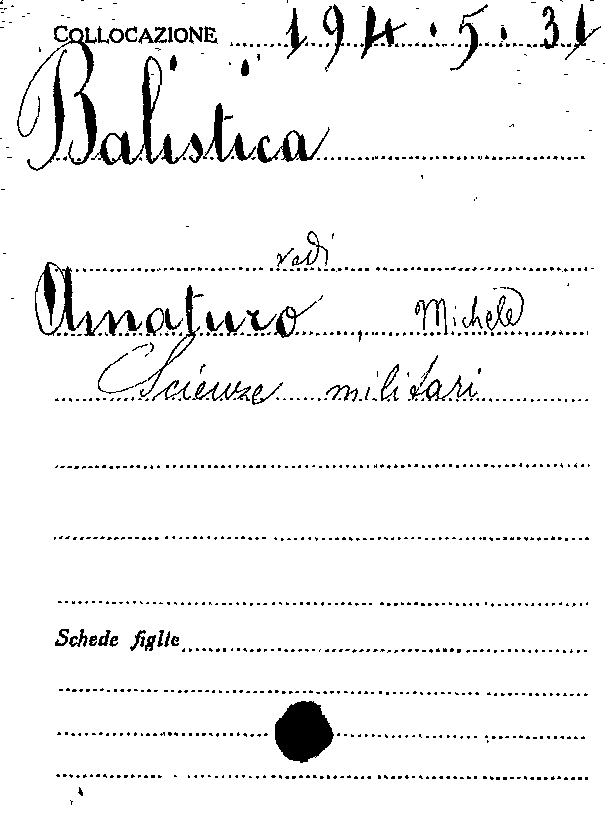 COLLOCAZIONE 194.5.31
Balistica
vedi
Amaturo, Michele
Scienze militari
Schede figlie